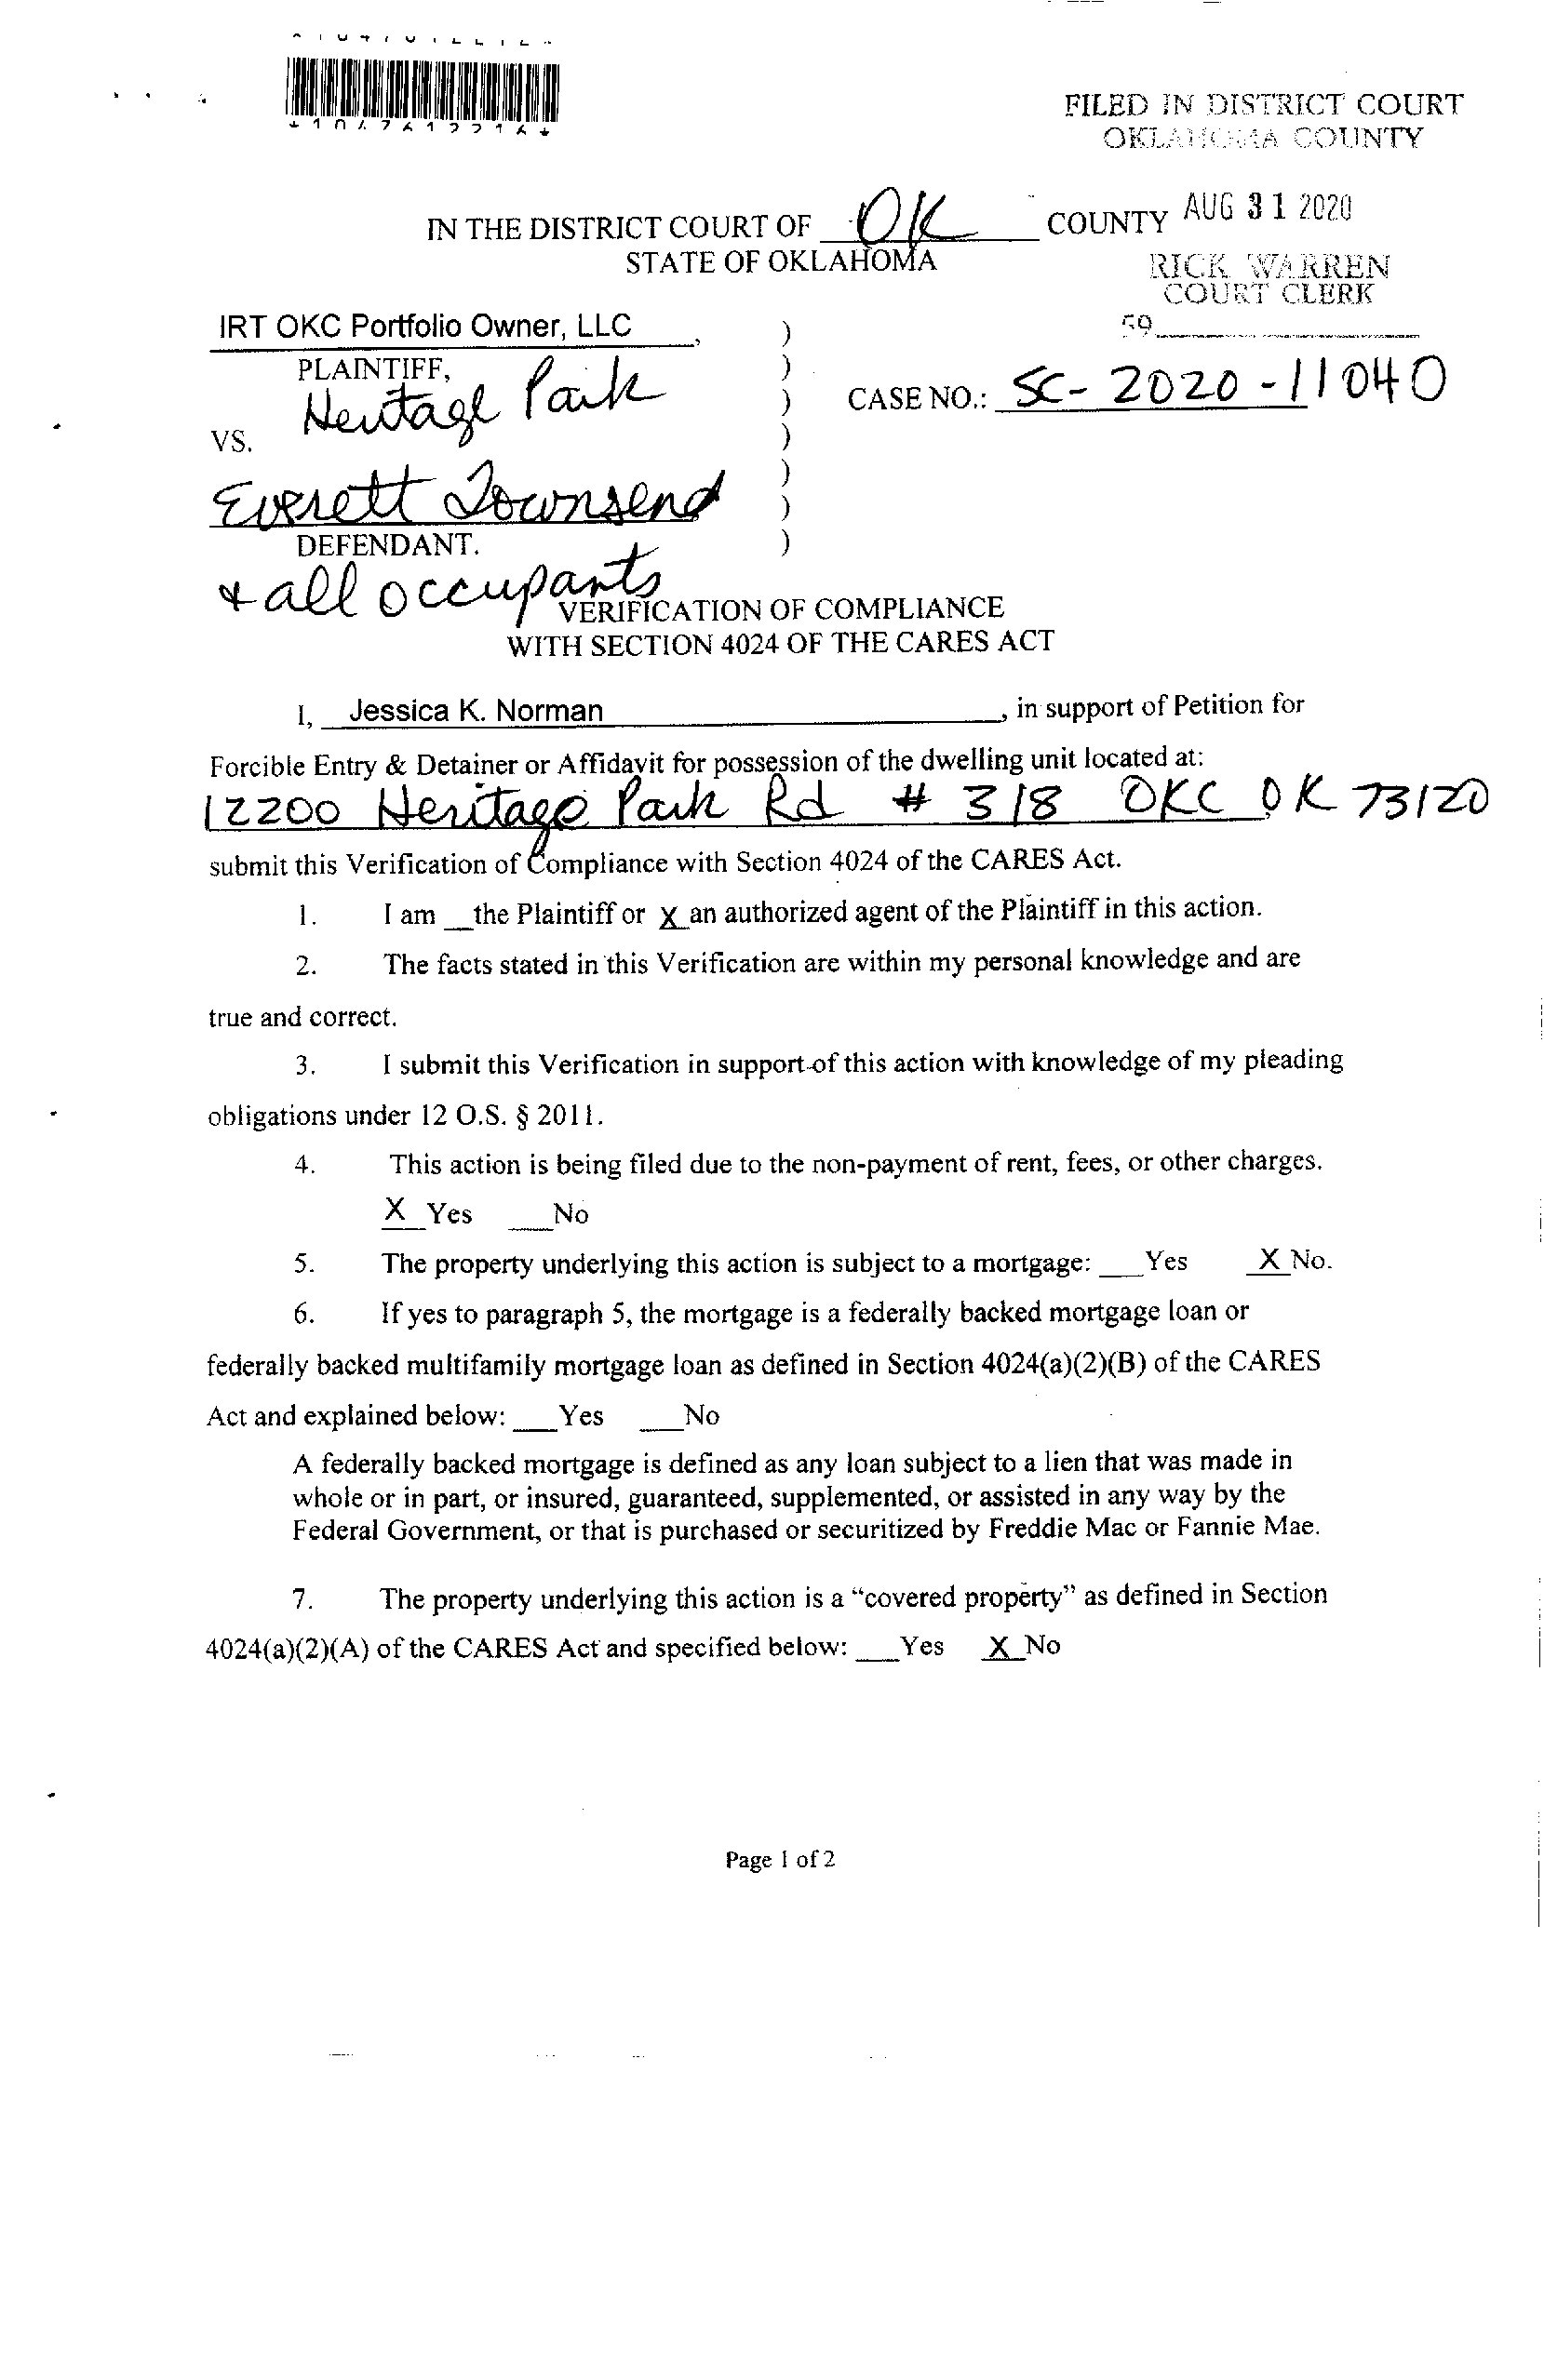 *1047612214*
FILED IN DISTRICT COURT
OKLAHOMA COUNTY
IN THE DISTRICT COURT OF OK COUNTY AUG 31 2020
STATE OF OKLAHOMA
RICK WARREN
COURT CLERK
IRT OKC Portfolio Owner, LLC , ) 59
PLAINTIFF, )
Heritage Park ) CASE NO.: SC-2020-11040
VS. )
)
Everett Townsend )
DEFENDANT. )
& all occupants
VERIFICATION OF COMPLIANCE
WITH SECTION 4024 OF THE CARES ACT
I, Jessica K. Norman , in support of Petition for
Forcible Entry & Detainer or Affidavit for possession of the dwelling unit located at:
12200 Heritage Park Rd # 318 OKC, OK 73120
submit this Verification of Compliance with Section 4024 of the CARES Act.
1. I am __the Plaintiff or X an authorized agent of the Plaintiff in this action.
2. The facts stated in this Verification are within my personal knowledge and are
true and correct.
3. I submit this Verification in support of this action with knowledge of my pleading
obligations under 12 O.S. § 2011.
4. This action is being filed due to the non-payment of rent, fees, or other charges.
X Yes ___No
5. The property underlying this action is subject to a mortgage: ___Yes X No.
6. If yes to paragraph 5, the mortgage is a federally backed mortgage loan or
federally backed multifamily mortgage loan as defined in Section 4024(a)(2)(B) of the CARES
Act and explained below: ___Yes ___No
A federally backed mortgage is defined as any loan subject to a lien that was made in
whole or in part, or insured, guaranteed, supplemented, or assisted in any way by the
Federal Government, or that is purchased or securitized by Freddie Mac or Fannie Mae.
7. The property underlying this action is a “covered property” as defined in Section
4024(a)(2)(A) of the CARES Act and specified below: ___Yes X No
Page 1 of 2